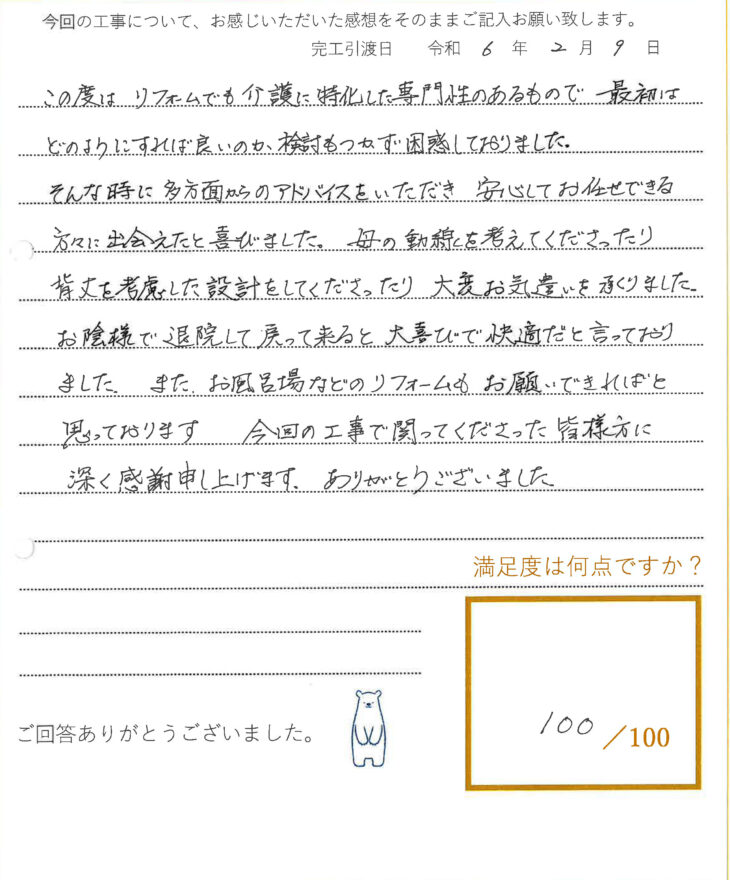 今回の工事について、お感じいただいた感想をそのままご記入お願い致します。
完工引渡日　令和 6 年 2 月 9 日
この度は リフォームでも介護に特化した専門性のあるもので 最初は
どのようにすれば良いのか、検討もつかず困惑しておりました。
そんな時に多方面からのアドバイスをいただき 安心してお任せできる
方々に出会えたと喜びました。 母の動線を考えてくださったり
背丈を考慮した設計をしてくださったり 大変お気遣いを承りました。
お陰様で退院して戻って来ると 大喜びで快適だと言っており
ました。 また、お風呂場などのリフォームも お願いできればと
思っております 今回の工事で関ってくださった皆様方に
深く感謝申し上げます。 ありがとうございました。
満足度は何点ですか？
100／100
ご回答ありがとうございました。